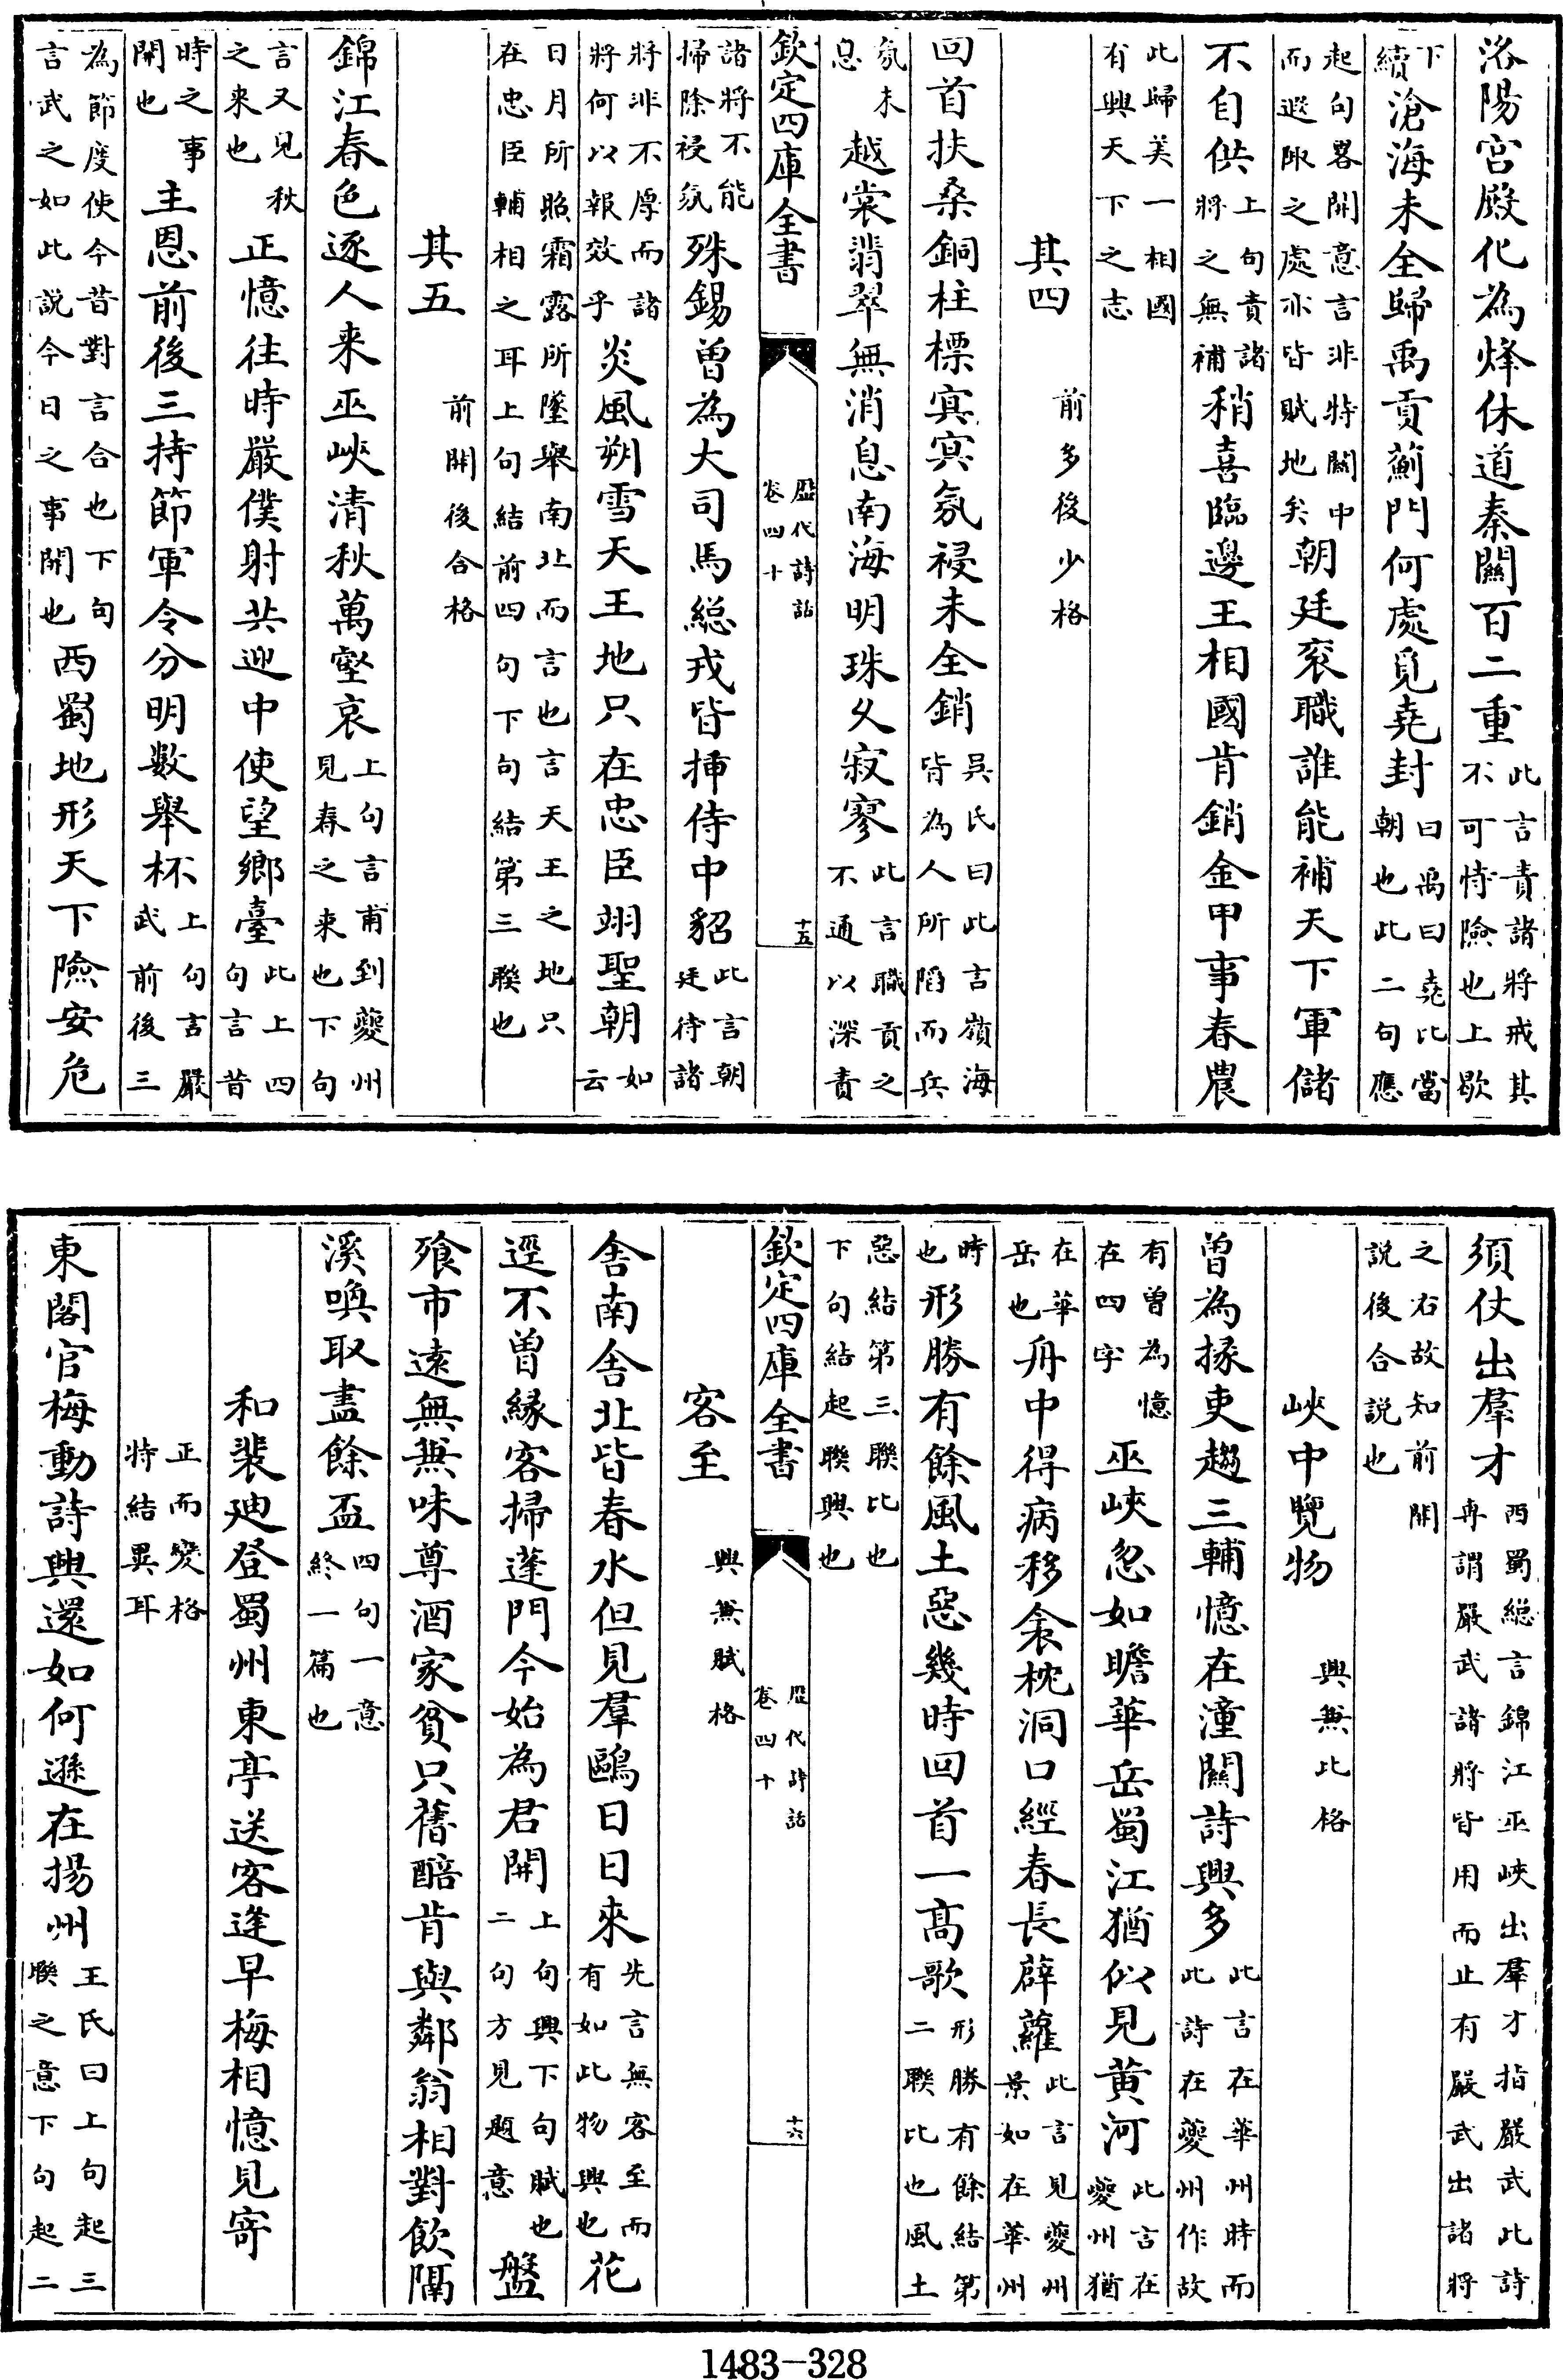 洛陽宫殿化為烽休道秦闗百二重此言責諸將戒其不可恃險也上歇
下續滄海未全歸禹貢薊門何處覓堯封曰禹曰堯比當朝也此二句應
起句畧開意言非特闗中而遐陬之處亦皆賦地矣朝廷衮職誰能補天下軍儲
不自供上句責諸將之無補稍喜臨邊王相國肯銷金甲事春農
此歸美一相國有興天下之志
其四　前多後少格
回首扶桑銅柱標㝠㝠氛祲未全銷吳氏曰此言嶺海皆為人所陷而兵
氛未息越裳翡翠無消息南海明珠乆寂寥此言職貢之不通以深責
欽定四庫全書　歴代詩話卷四十　十五
諸將不能掃除祲氛殊錫曽為大司馬總戎皆揷侍中貂此言朝廷待諸
將非不厚而諸將何以報效乎炎風朔雪天王地只在忠臣翊聖朝如云
日月所照霜露所墜舉南北而言也言天王之地只在忠臣輔相之耳上句結前四句下句結第三聯也
其五　前開後合格
錦江春色逐人来巫峽清秋萬壑哀上句言甫到夔州見春之来也下句
言又見秋之来也正憶往時嚴僕射共迎中使望鄉臺此上四句言昔
時之事開也主恩前後三持節軍令分明數舉杯上句言嚴武前後三
為節度使今昔對言合也下句言武之如此説今日之事開也西蜀地形天下險安危
須仗出羣才西蜀總言錦江巫峽出羣才指嚴武此詩再謂嚴武諸將皆用而止有嚴武出諸將
之右故知前開説後合説也
峽中覽物　興兼比格
曽為掾吏趨三輔憶在潼闗詩興多此言在華州時而此詩在夔州作故
有曽為憶在四字巫峽忽如瞻華岳蜀江猶似見黄河此言在夔州猶
在華岳也舟中得病移衾枕洞口經春長辟蘿此言見夔州景如在華州
時也形勝有餘風土惡幾時回首一髙歌形勝有餘結第二聯比也風土
惡結第三聯比也下句結起聯興也
欽定四庫全書　歴代詩話卷四十　十六
客至　興兼賦格
舍南舍北皆春水但見羣鷗日日來先言無客至而有如此物興也花
逕不曽緣客掃蓬門今始為君開上句興下句賦也二句方見題意盤
飱市逺無兼味尊酒家貧只舊醅肯與鄰翁相對飲隔
溪喚取盡餘盃四句一意終一篇也
和裴廸登蜀州東亭送客逢早梅相憶見寄
正而變格特結異耳
東閣官梅動詩興還如何遜在揚州王氏曰上句起三聯之意下句起二
1483—328